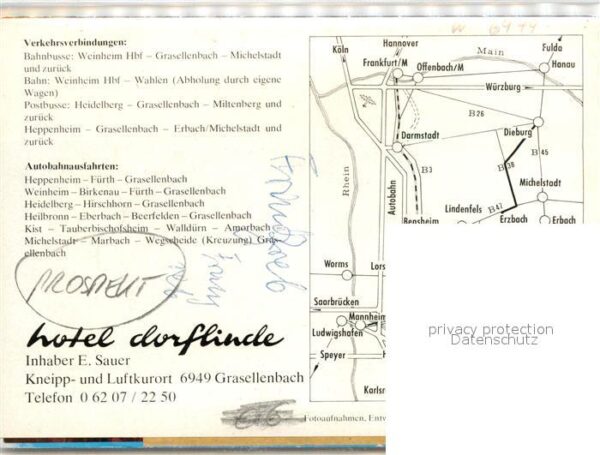 W 6949
Verkehrsverbindungen:
Bahnbusse: Weinheim Hbf – Grasellenbach – Michelstadt
und zurück
Bahn: Weinheim Hbf – Wahlen (Abholung durch eigene
Wagen)
Postbusse: Heidelberg – Grasellenbach – Miltenberg und
zurück
Heppenheim – Grasellenbach – Erbach/Michelstadt und
zurück
Autobahnausfahrten:
Heppenheim – Fürth – Grasellenbach
Weinheim – Birkenau – Fürth – Grasellenbach
Heidelberg – Hirschhorn – Grasellenbach
Heilbronn – Eberbach – Beerfelden – Grasellenbach
Kist – Tauberbischofsheim – Walldürn – Amorbach
Michelstadt – Marbach – Wegscheide (Kreuzung) Gras-
ellenbach
PROSPEKT
hotel dorflinde
Inhaber E. Sauer
Kneipp- und Luftkurort 6949 Grasellenbach
Telefon 0 62 07 / 22 50
Fotoaufnahmen, Entw
Hannover
Köln
Main
Fulda
Frankfurt/M
Offenbach/M
Hanau
Würzburg
B 26
Dieburg
Darmstadt
B 45
B 38
B 3
Rhein
Autobahn
Michelstadt
Lindenfels
B 47
Bensheim
Erzbach
Erbach
Worms
Lors
Saarbrücken
Mannheim
Ludwigshafen
Speyer
H
Karlsr
privacy protection
Datenschutz